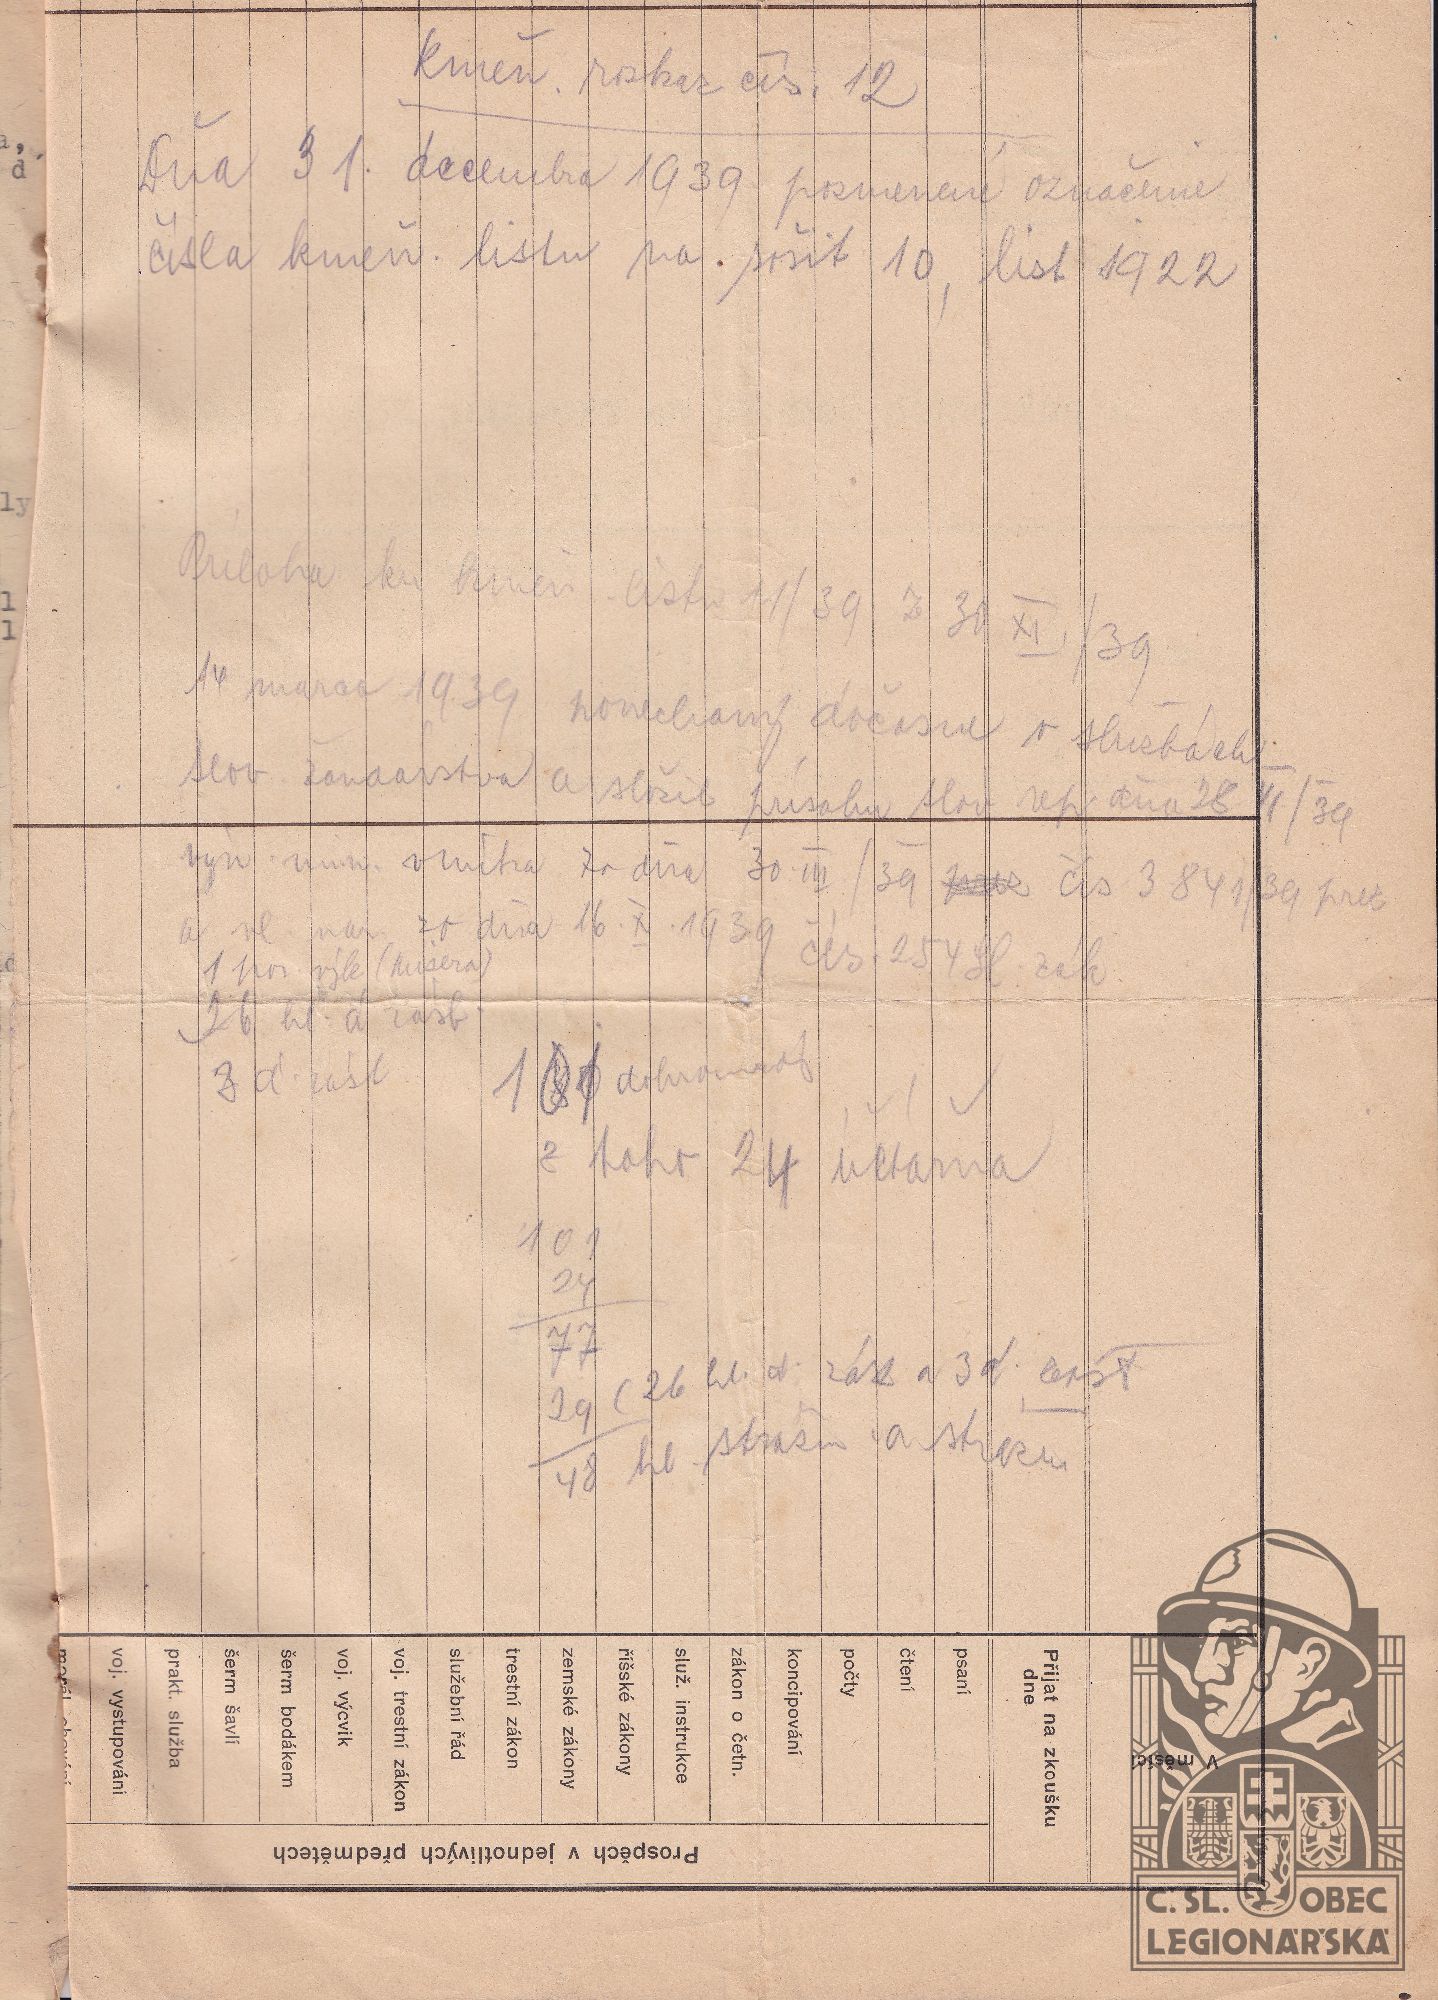 kmeň. rozkaz čís. 12
Dňa 31. decembra 1939 pozmenené označenie
čísla kmeň. listu na sošit 10, list 1922
Príloha ku kmeň. listu 11/39 z 30 XI./39
14 marca 1939 ponechaný dočasne v službách
slov. žandárstva a složil prísahu slov. rep. dňa 28
výn. min. vnútra zo dňa 30. III/39 čís 3841/39 prez
a vl. nar. zo dňa 16. X. 1939 čís. 254 Sl. zák
1 por. výk (
26 hl. d. zást.
3 d. zást
dobromad
z toho 24 účtarňa
101
24
77
29 (26 hl. d. zást a 3 d. zást
48 hl. stražm. a stražm
morál. chování
voj. vystupování
prakt. služba
šerm šavlí
šerm bodákem
voj. výcvik
voj. trestní zákon
služební řád
trestní zákon
zemské zákony
říšské zákony
služ. instrukce
zákon o četn.
koncipování
počty
čtení
psaní
Přijat na zkoušku
dne
V měsíci
Prospěch v jednotlivých předmětech
Č. SL. OBEC
LEGIONÁŘSKÁ
a,
d
ly
l
l